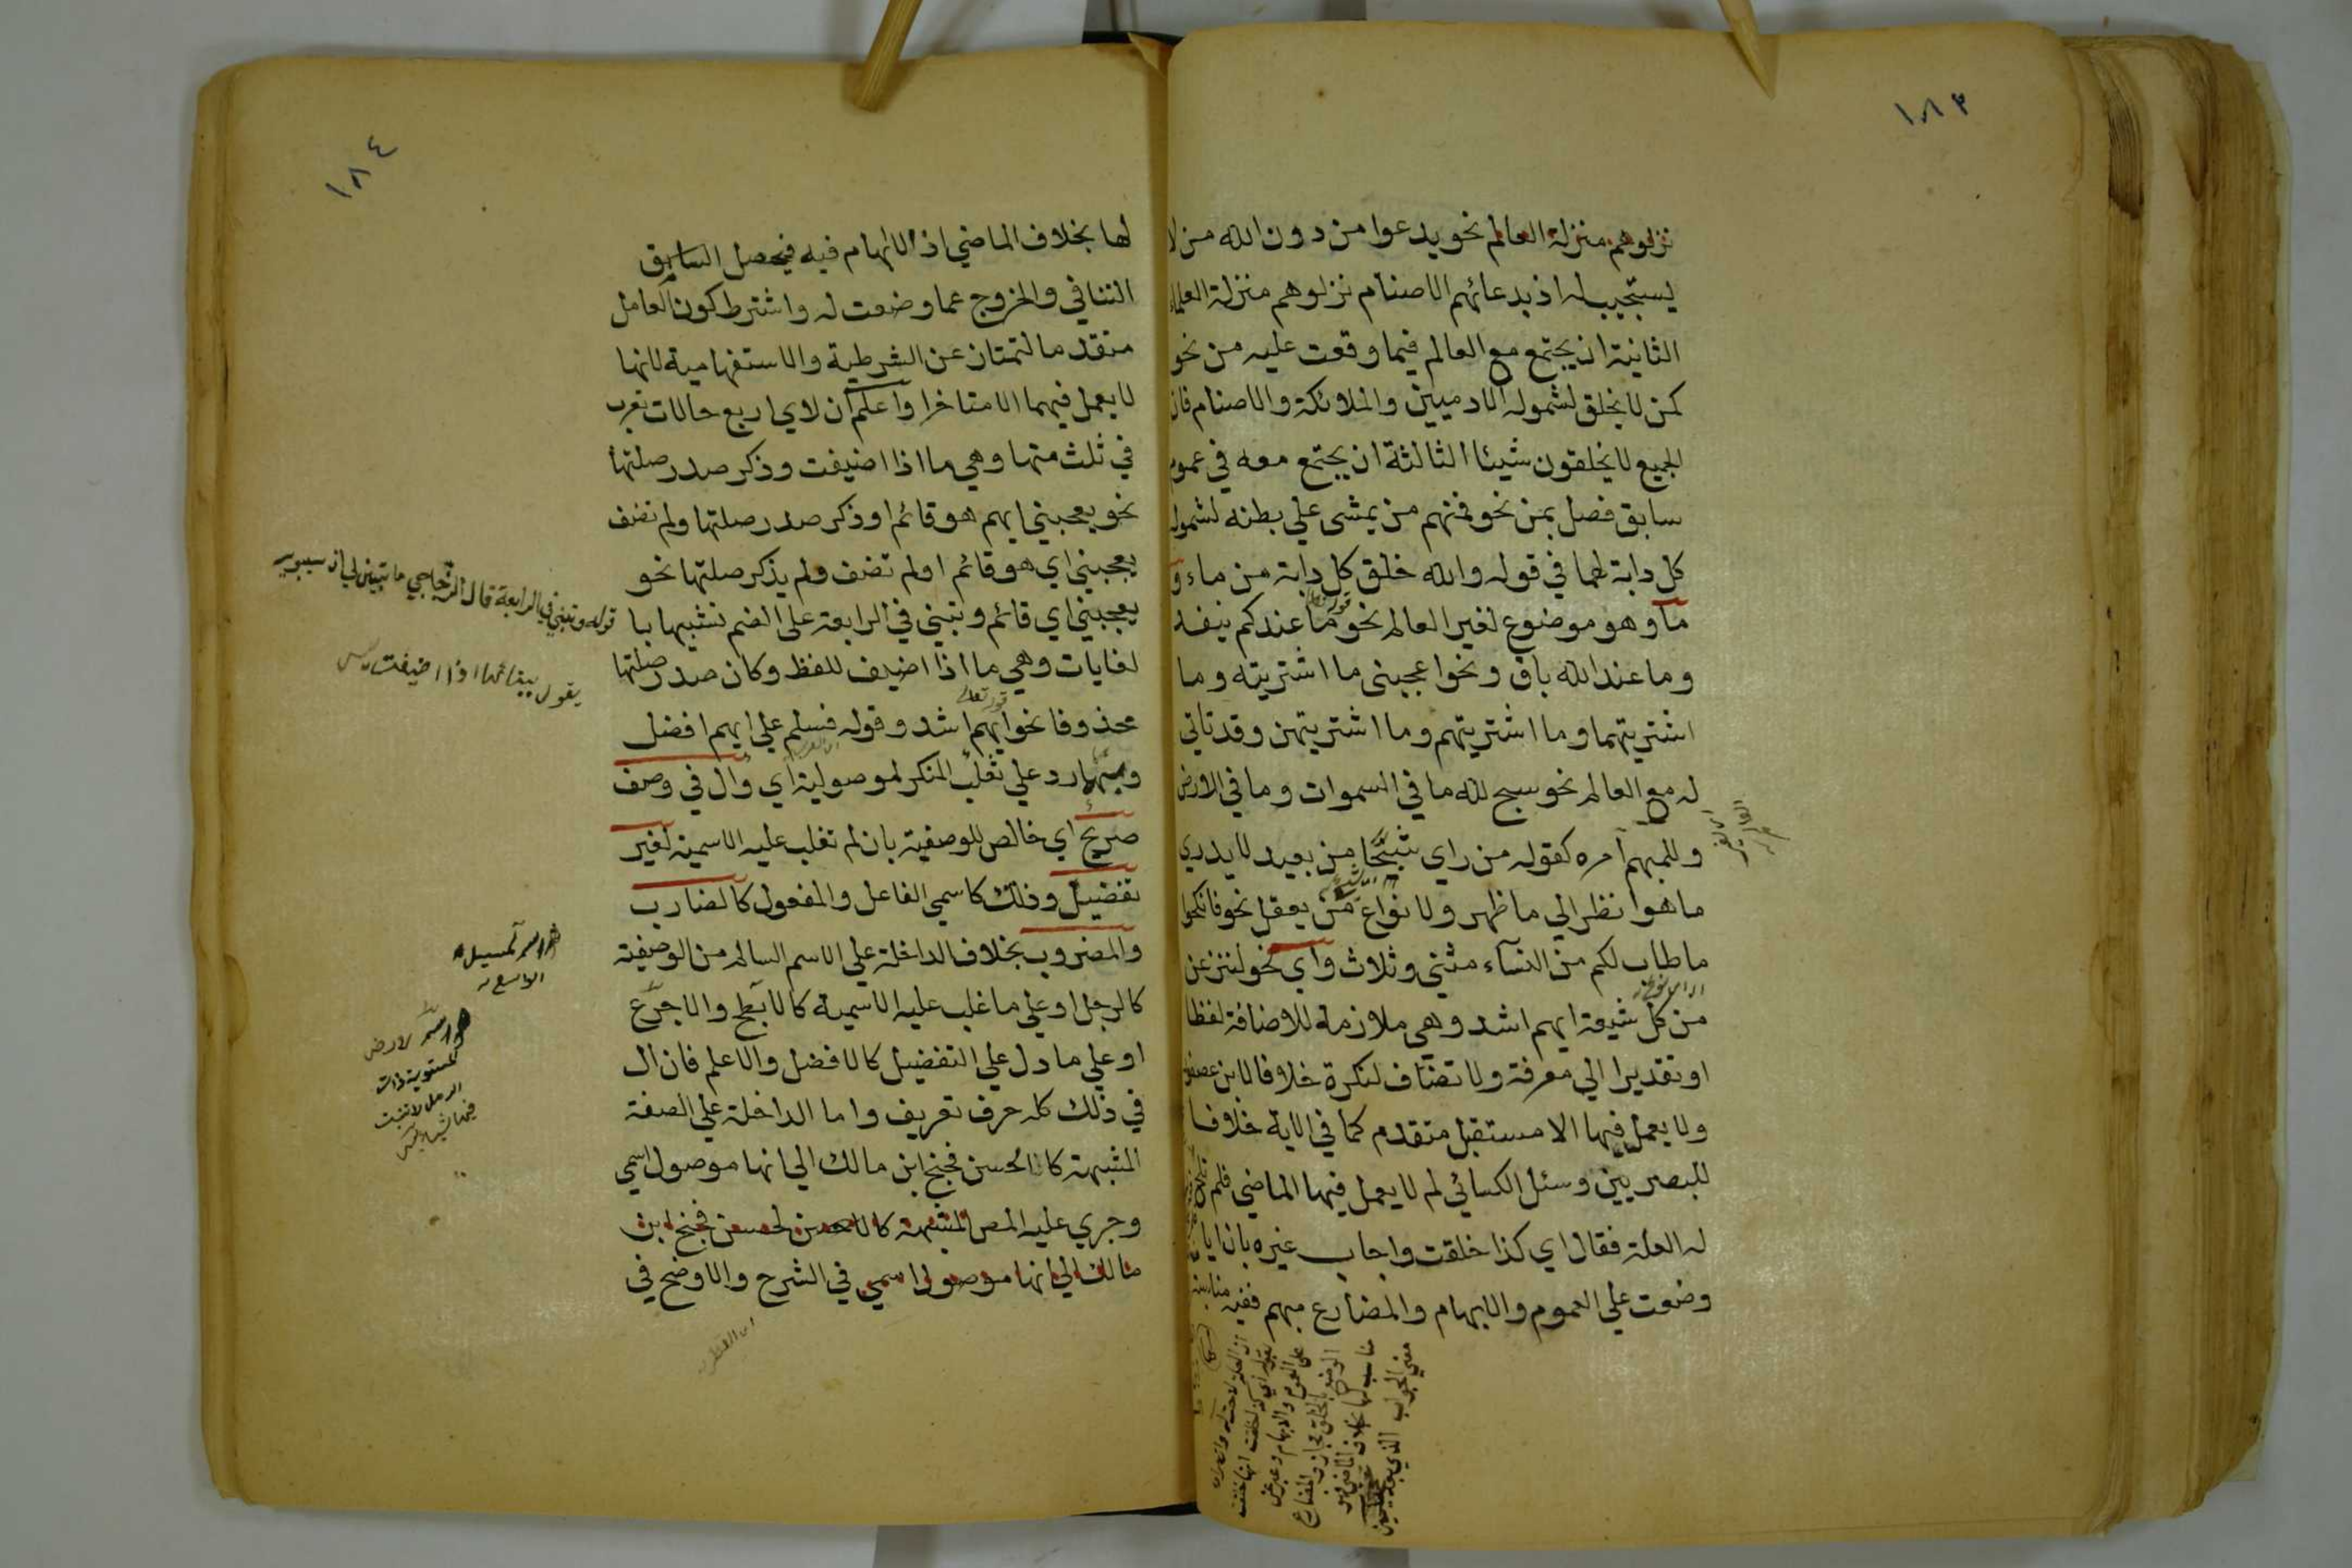 ١٨٣
نزلوهم منزلة العالم نحو يدعوا من دون الله من لا
يستجيب له اذ بدعائهم الاصنام نزلوهم منزلة العلماء
الثانية ان يجتمع مع العالم فيما وقعت عليه من نحو
كمن لا يخلق لشموله الادميين والملائكة والاصنام فان
الجميع لا يخلقون شيئا الثالثة ان يجتمع معه في عموم
سابق فصل بمن نحو فمنهم من يمشي علي بطنه لشموله
كل دابة لهما في قوله والله خلق كل دابة من ماء و
ما وهو موضوع لغير العالم نحو ما عندكم ينفد
وما عند الله باق ونحو اعجبني ما اشتريته وما
اشتريتهما وما اشتريتهم وما اشتريتهن وقد تاتي
له مع العالم نحو سبح لله ما في السموات وما في الارض
وللمبهم امره كقوله من راي شبحا من بعيد لا يدري
ما هو انظر الي ما ظهر ولانواع من يعقل نحو فانكحوا
ما طاب لكم من النسآء مثني وثلاث واي نحو لننزعن
من كل شيعة ايهم اشد وهي ملازمة للاضافة لفظا
او تقديرا الي معرفة ولا تضاف لنكرة خلافا لابن عصفور
ولا يعمل فيها الا مستقبل متقدم كما في الاية خلافا
للبصريين وسئل الكسائي لم لا يعمل فيها الماضي فلم
له العلة فقال اي كذا خلقت واجاب غيره بان ايا
وضعت علي العموم والابهام والمضارع مبهم ففيه مناسبة
١٨٤
لها بخلاف الماضي اذ لا ابهام فيه فيحصل السابق
التنافي والخروج عما وضعت له واشترط كون العامل
متقدما لتمتاز عن الشرطية والاستفهامية لانها
لا يعمل فيهما الا متاخرا واعلم ان لاي اربع حالات تعرب
في ثلث منها وهي ما اذا اضيفت وذكر صدر صلتها
نحو يعجبني ايهم هو قائم او ذكر صدر صلتها ولم تضف
يعجبني اي هو قائم او لم تضف ولم يذكر صلتها نحو
يعجبني اي قائم وتبني في الرابعة علي الضم تشبيها با
لغايات وهي ما اذا اضيف للفظ وكان صدر صلتها
محذوفا نحو ايهم اشد وقوله فسلم علي ايهم افضل
وبهما رد علي ثعلب المنكر لموصولية اي وال في وصف
صريح اي خالص للوصفية بان لم تغلب عليه الاسمية لغير
تفضيل وذلك كاسمي الفاعل والمفعول كالضارب
والمضروب بخلاف الداخلة علي الاسم السالم من الوصفية
كالرجل او علي ما غلب عليه الاسمية كالابطح والاجرع
او علي ما دل علي التفضيل كالافضل والاعلم فان ال
في ذلك كله حرف تعريف واما الداخلة علي الصفة
المشبهة كالحسن فجنح ابن مالك الي انها موصول اسمي
وجري عليه المص المشبهة كالحسن فجنح ابن
مالك الي انها موصول اسمي في الشرح والاوضح في
قوله وتبني في الرابعة قال الزجاجي ما تبين لي ان سيبويه
يقول ببنائها اذا اضيفت